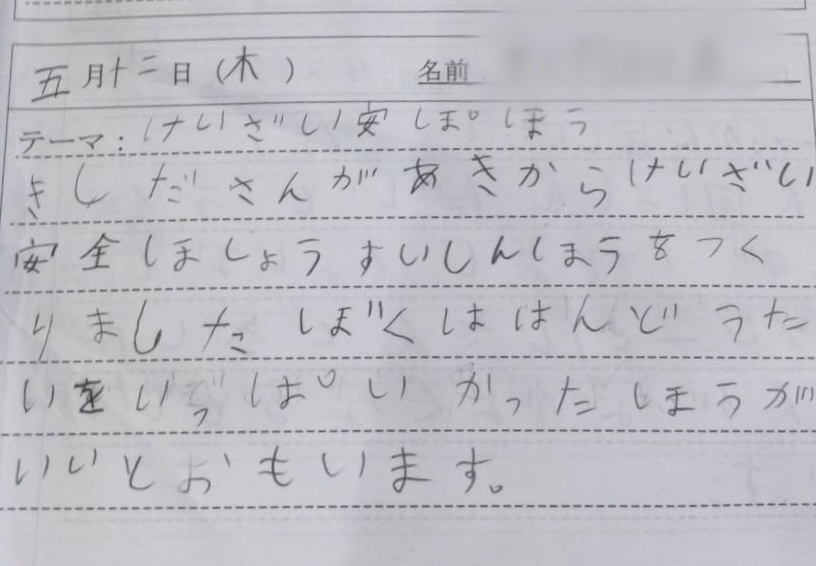 五月十二日(木) 名前
テーマ:けいざい安ぽほう
きしださんがあきからけいざい
安全ほしょうすいしんほうをつく
りましたぼくははんどうた
いをいっぱいかったほうが
いいとおもいます。